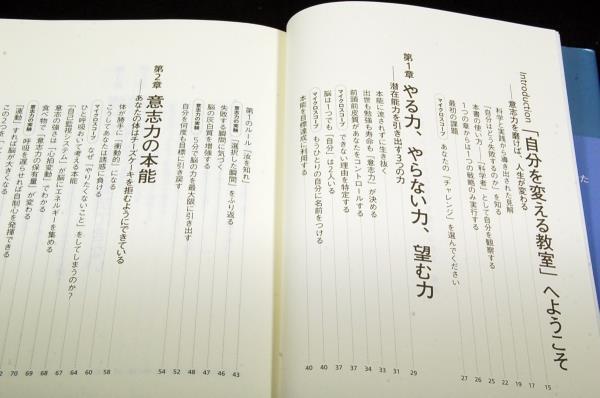 Introduction 「自分を変える教室」へようこそ
――意志力を磨けば、人生が変わる
科学と実践から導き出された見解
「自分はどう失敗するのか」を知る
本書の使い方――「科学者」として自分を観察する
1つの章から1つの戦略のみ実行する
最初の課題
マイクロスコープ あなたの「チャレンジ」を選んでください
第1章 やる力、やらない力、望む力
――潜在能力を引き出す3つの力
本能に流されずに生き抜く
出世も勉強も寿命も「意志力」が決める
前頭前皮質があなたをコントロールする
マイクロスコープ できない理由を特定する
脳は1つでも「自分」は2人いる
マイクロスコープ もうひとりの自分に名前をつける
本能を目標達成に利用する
15 17 19 22 25 26 27 29 31 33 34 37 37 40 40
第1のルール「汝を知れ」
意志力の実験 「選択した瞬間」をふり返る
失敗する瞬間に気づく
脳の灰白質を増強する
意志力の実験 5分で脳の力を最大限に引き出す
自分を何度も目標に引き戻す
第2章 意志力の本能
――あなたの体はチーズケーキを拒むようにできている
体が勝手に「衝動的」になる
こうしてあなたは誘惑に負ける
ひと呼吸おいて考える本能
マイクロスコープ なぜ「やりたくないこと」をしてしまうのか?
「自己監視システム」が脳にエネルギーを集める
意志の強さは「心拍変動」でわかる
食べ物で「意志力の保有量」が変わる
意志力の実験 呼吸を遅らせれば自制心を発揮できる
「運動」すれば脳が大きくなる
この2つを
43 46 47 48 52 54 58 60 64 67 68 69 70
た